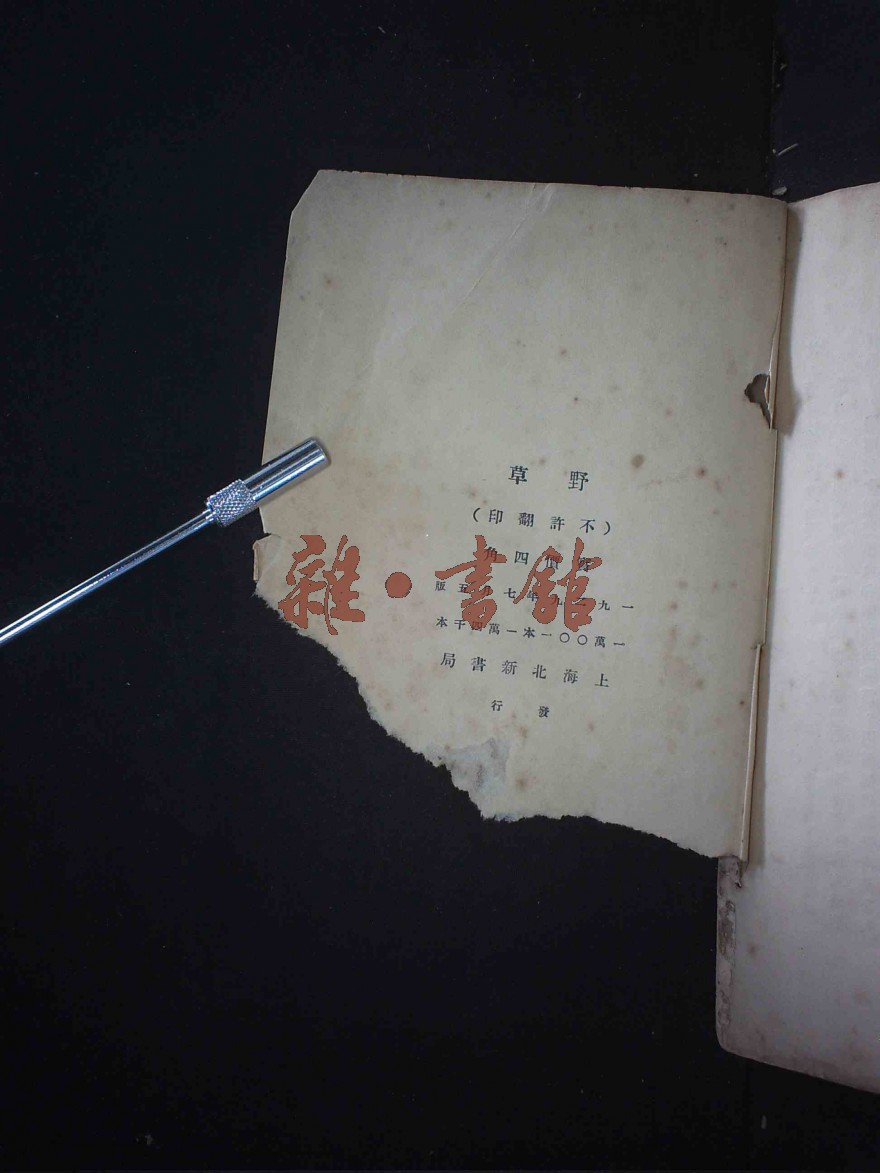 野草
(不許翻印)
實價四角
一九二九年七月五版
一萬〇〇一本—一萬四千本
上海北新書局
發行
雜·書館